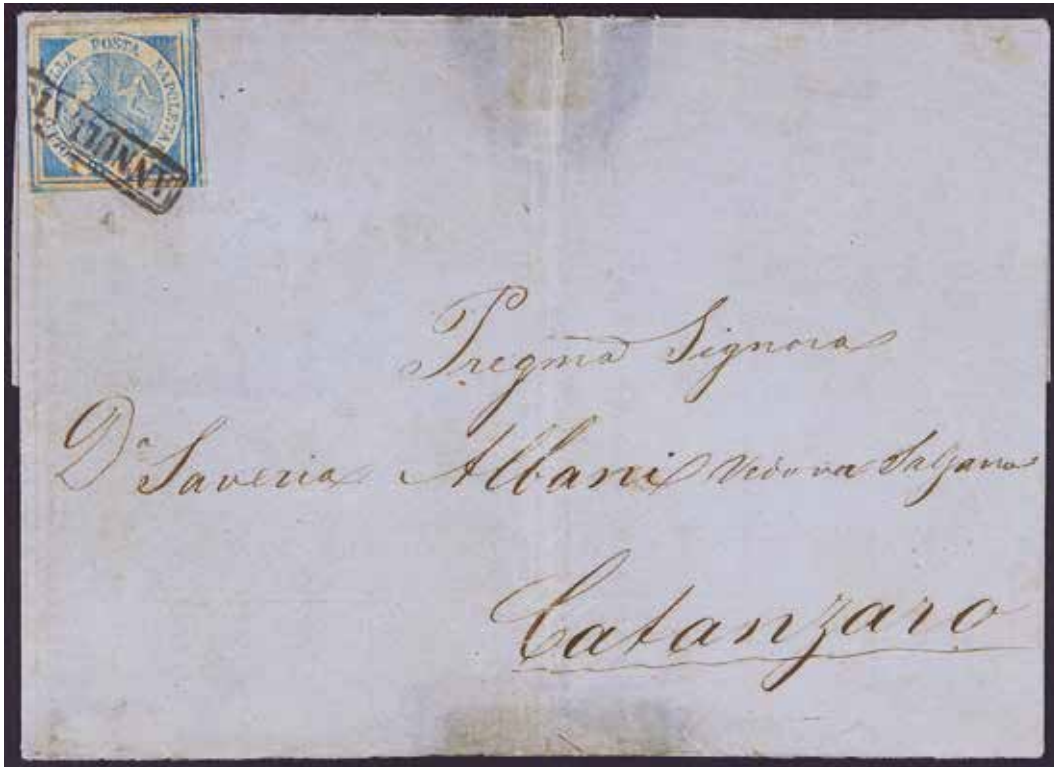 LLA POSTA NAPOLETA
ANNULLATO
Pregma Signora
Da Saveria Albani Vedova Salzano
Catanzaro